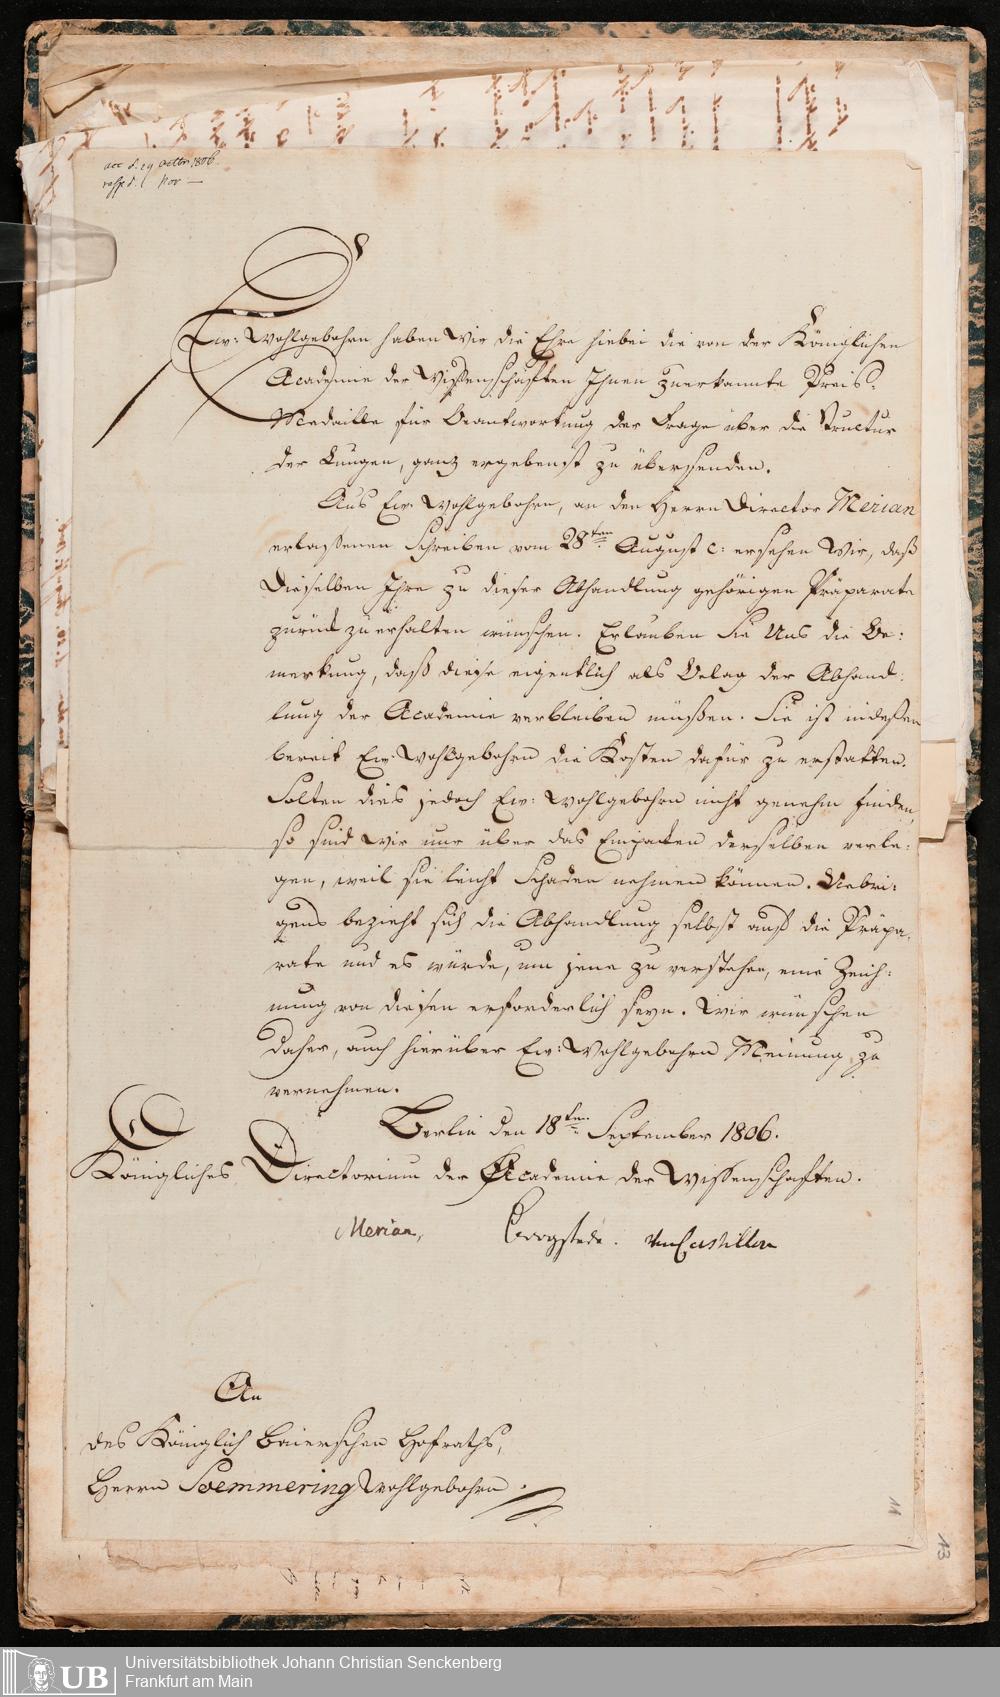 acc d. 29 Octbr 1806.
resp d. 1 Nov —
Ew: Wohlgebohrn haben Wir die Ehre hiebei die von der Königlichen
Academie der Wißenschaften Ihnen zuerkannte Preis-
Medaille für Beantwortung der Frage über die Structur
der Lungen, ganz ergebenst zu übersenden.
Aus Ew: Wohlgebohrn, an den Herrn Director Merian
erlaßenen Schreiben vom 28ten August c: ersehen Wir, daß
Dieselben Ihre zu dieser Abhandlung gehörigen Präparate
zurück zu erhalten wünschen. Erlauben Sie Uns die Be:
merkung, daß diese eigentlich als Belag der Abhand:
lung der Academie verbleiben müßen. Sie ist indeßen
bereit Ew: Wohlgebohrn die Kosten dafür zu erstatten.
Solten dies jedoch Ew: Wohlgebohrn nicht genehm finden,
so sind Wir nur über das Einpacken derselben verle:
gen, weil sie leicht Schaden nehmen können. Uebri:
gens bezieht sich die Abhandlung selbst auf die Präpa:
rate und es würde, um jene zu verstehen, eine Zeich:
nung von diesen erforderlich seyn. Wir wünschen
daher, auch hierüber Ew: Wohlgebohrn Meinung zu
vernehmen.
Berlin den 18ten September 1806.
Königliches Directorium der Academie der Wißenschaften.
Merian, Borgstede. von Castillon
An
des Königlich Baierschen Hofraths,
Herrn Soemmering Wohlgebohrn.
11
13
UB
Universitätsbibliothek Johann Christian Senckenberg
Frankfurt am Main